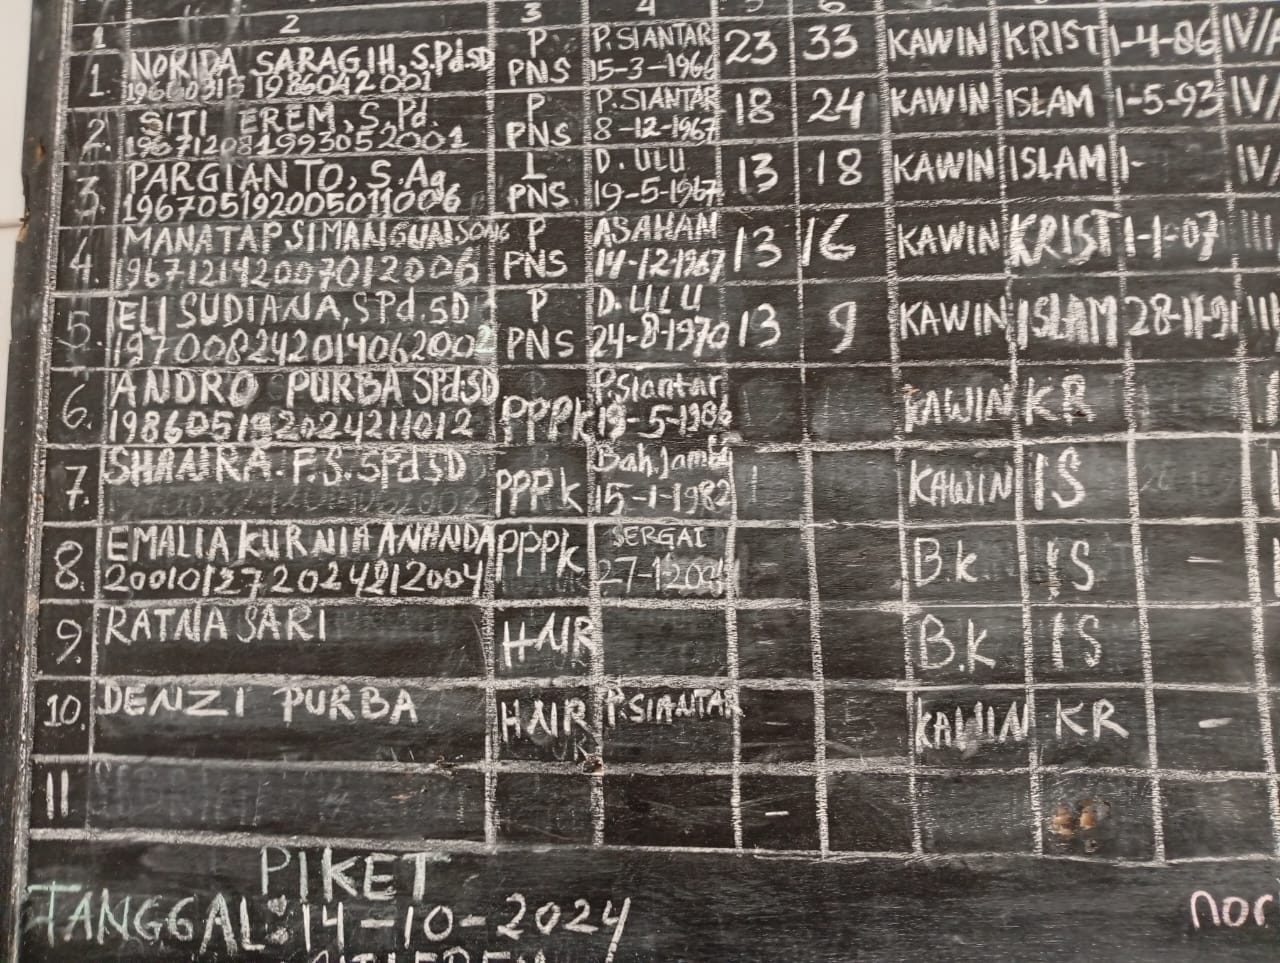 2 3 4 5 6
1
1. NORIDA SARAGIH, S.Pd.SD P P.SIANTAR 23 33 KAWIN KRIST 1-4-86 IV/A
196603151986042001 PNS 15-3-1966
2. SITI EREM, S.Pd. P P.SIANTAR 18 24 KAWIN ISLAM 1-5-93 IV/
196712081993052001 PNS 8-12-1967
3. PARGIANTO, S.Ag L D. ULU 13 18 KAWIN ISLAM 1- IV/
196705192005011006 PNS 19-5-1967
4. MANATAP SIMANGUNSONG P ASAHAN 13 16 KAWIN KRIST 1-1-07 III
196712142007012006 PNS 14-12-1967
5. ELI SUDIANA, SPd.SD P D. ULU 13 9 KAWIN ISLAM 28-11-91 III
197008242014062002 PNS 24-8-1970
6. ANDRO PURBA SPd.SD PPPK P.Siantar KAWIN KR
198605192024211012 19-5-1986
7. F.S. SPdSD PPPk Bah.Jambi KAWIN IS
15-1-1982
8. EMALIA KURNIA ANANDA PPPk SERGAI B.k IS -
200101372024212004 27-1
9. RATNA SARI HNR - B.k IS
10. DENZI PURBA HNR P.SIANTAR KAWIN KR -
11 -
PIKET
TANGGAL: 14-10-2024
SITI EREM
nor